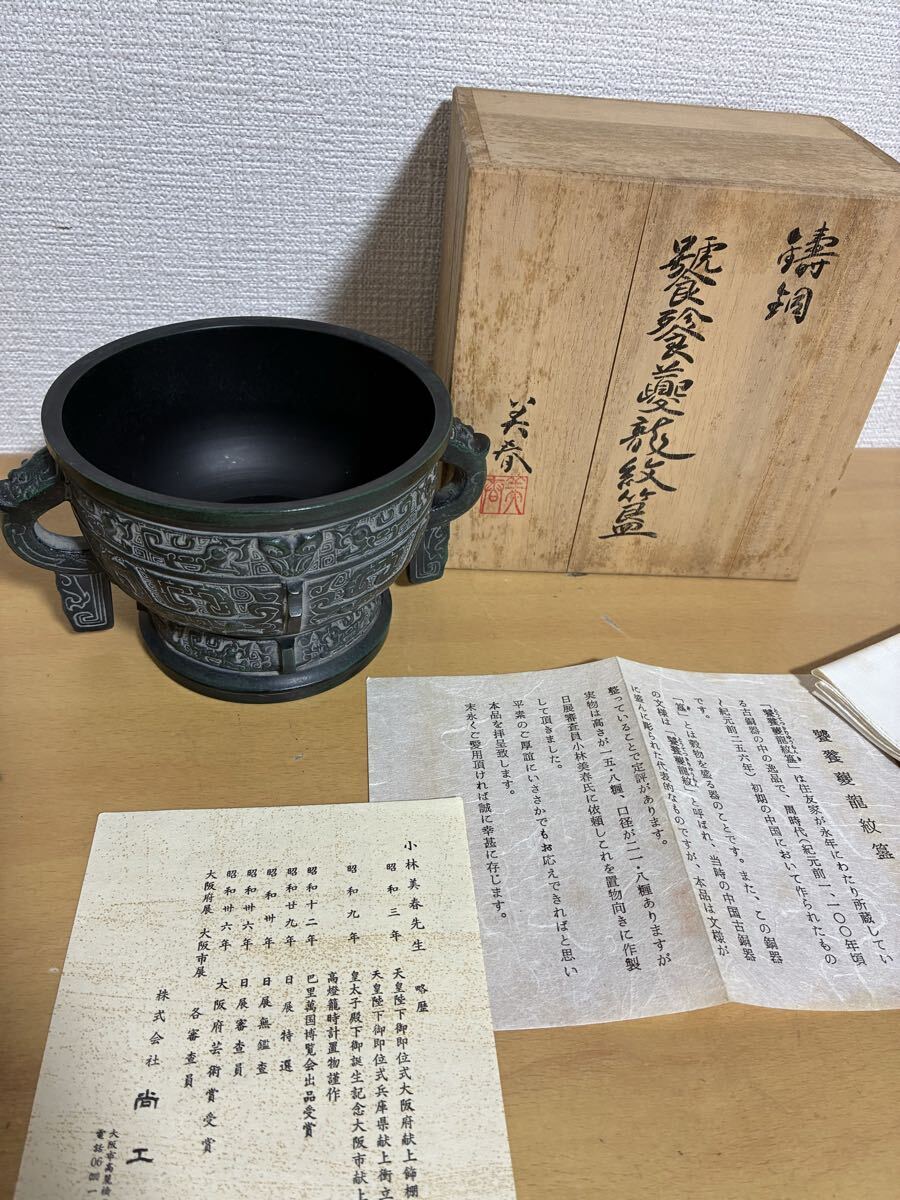 鋳銅
饕餮夔龍紋簋
美春
饕餮夔龍紋簋
「饕餮夔龍紋簋」は住友家が永年にわたり所蔵してい
る古銅器の中の逸品で、周時代（紀元前一、一〇〇年頃
〜紀元前二五六年）初期の中国において作られたもの
です。
「簋」とは穀物を盛る器のことです。また、この銅器
の文様は「饕餮夔龍紋」と呼ばれ、当時の中国古銅器
に盛んに彫られた代表的なものですが、本品は文様が
整っていることで定評があります。
実物は高さが一五・八糎、口径が二一・八糎ありますが
日展審査員小林美春氏に依頼しこれを置物向きに作製
して頂きました。
平素のご厚誼にいささかでもお応えできればと思い
本品を拝呈致します。
末永くご愛用頂ければ誠に幸甚に存じます。
小林美春先生 略歴
昭和三年 天皇陛下御即位式大阪府献上飾棚
天皇陛下御即位式兵庫県献上衝立
昭和九年 皇太子殿下御誕生記念大阪市献上
高燈籠時計置物謹作
昭和十二年 巴里萬国博覧会出品受賞
昭和廿九年 日展特選
昭和卅年 日展無鑑査
昭和卅六年 日展審査員
昭和卅六年 大阪府芸術賞受賞
大阪府展 大阪市展 各審査員
株式会社 尚工
大阪市高麗橋
電話06